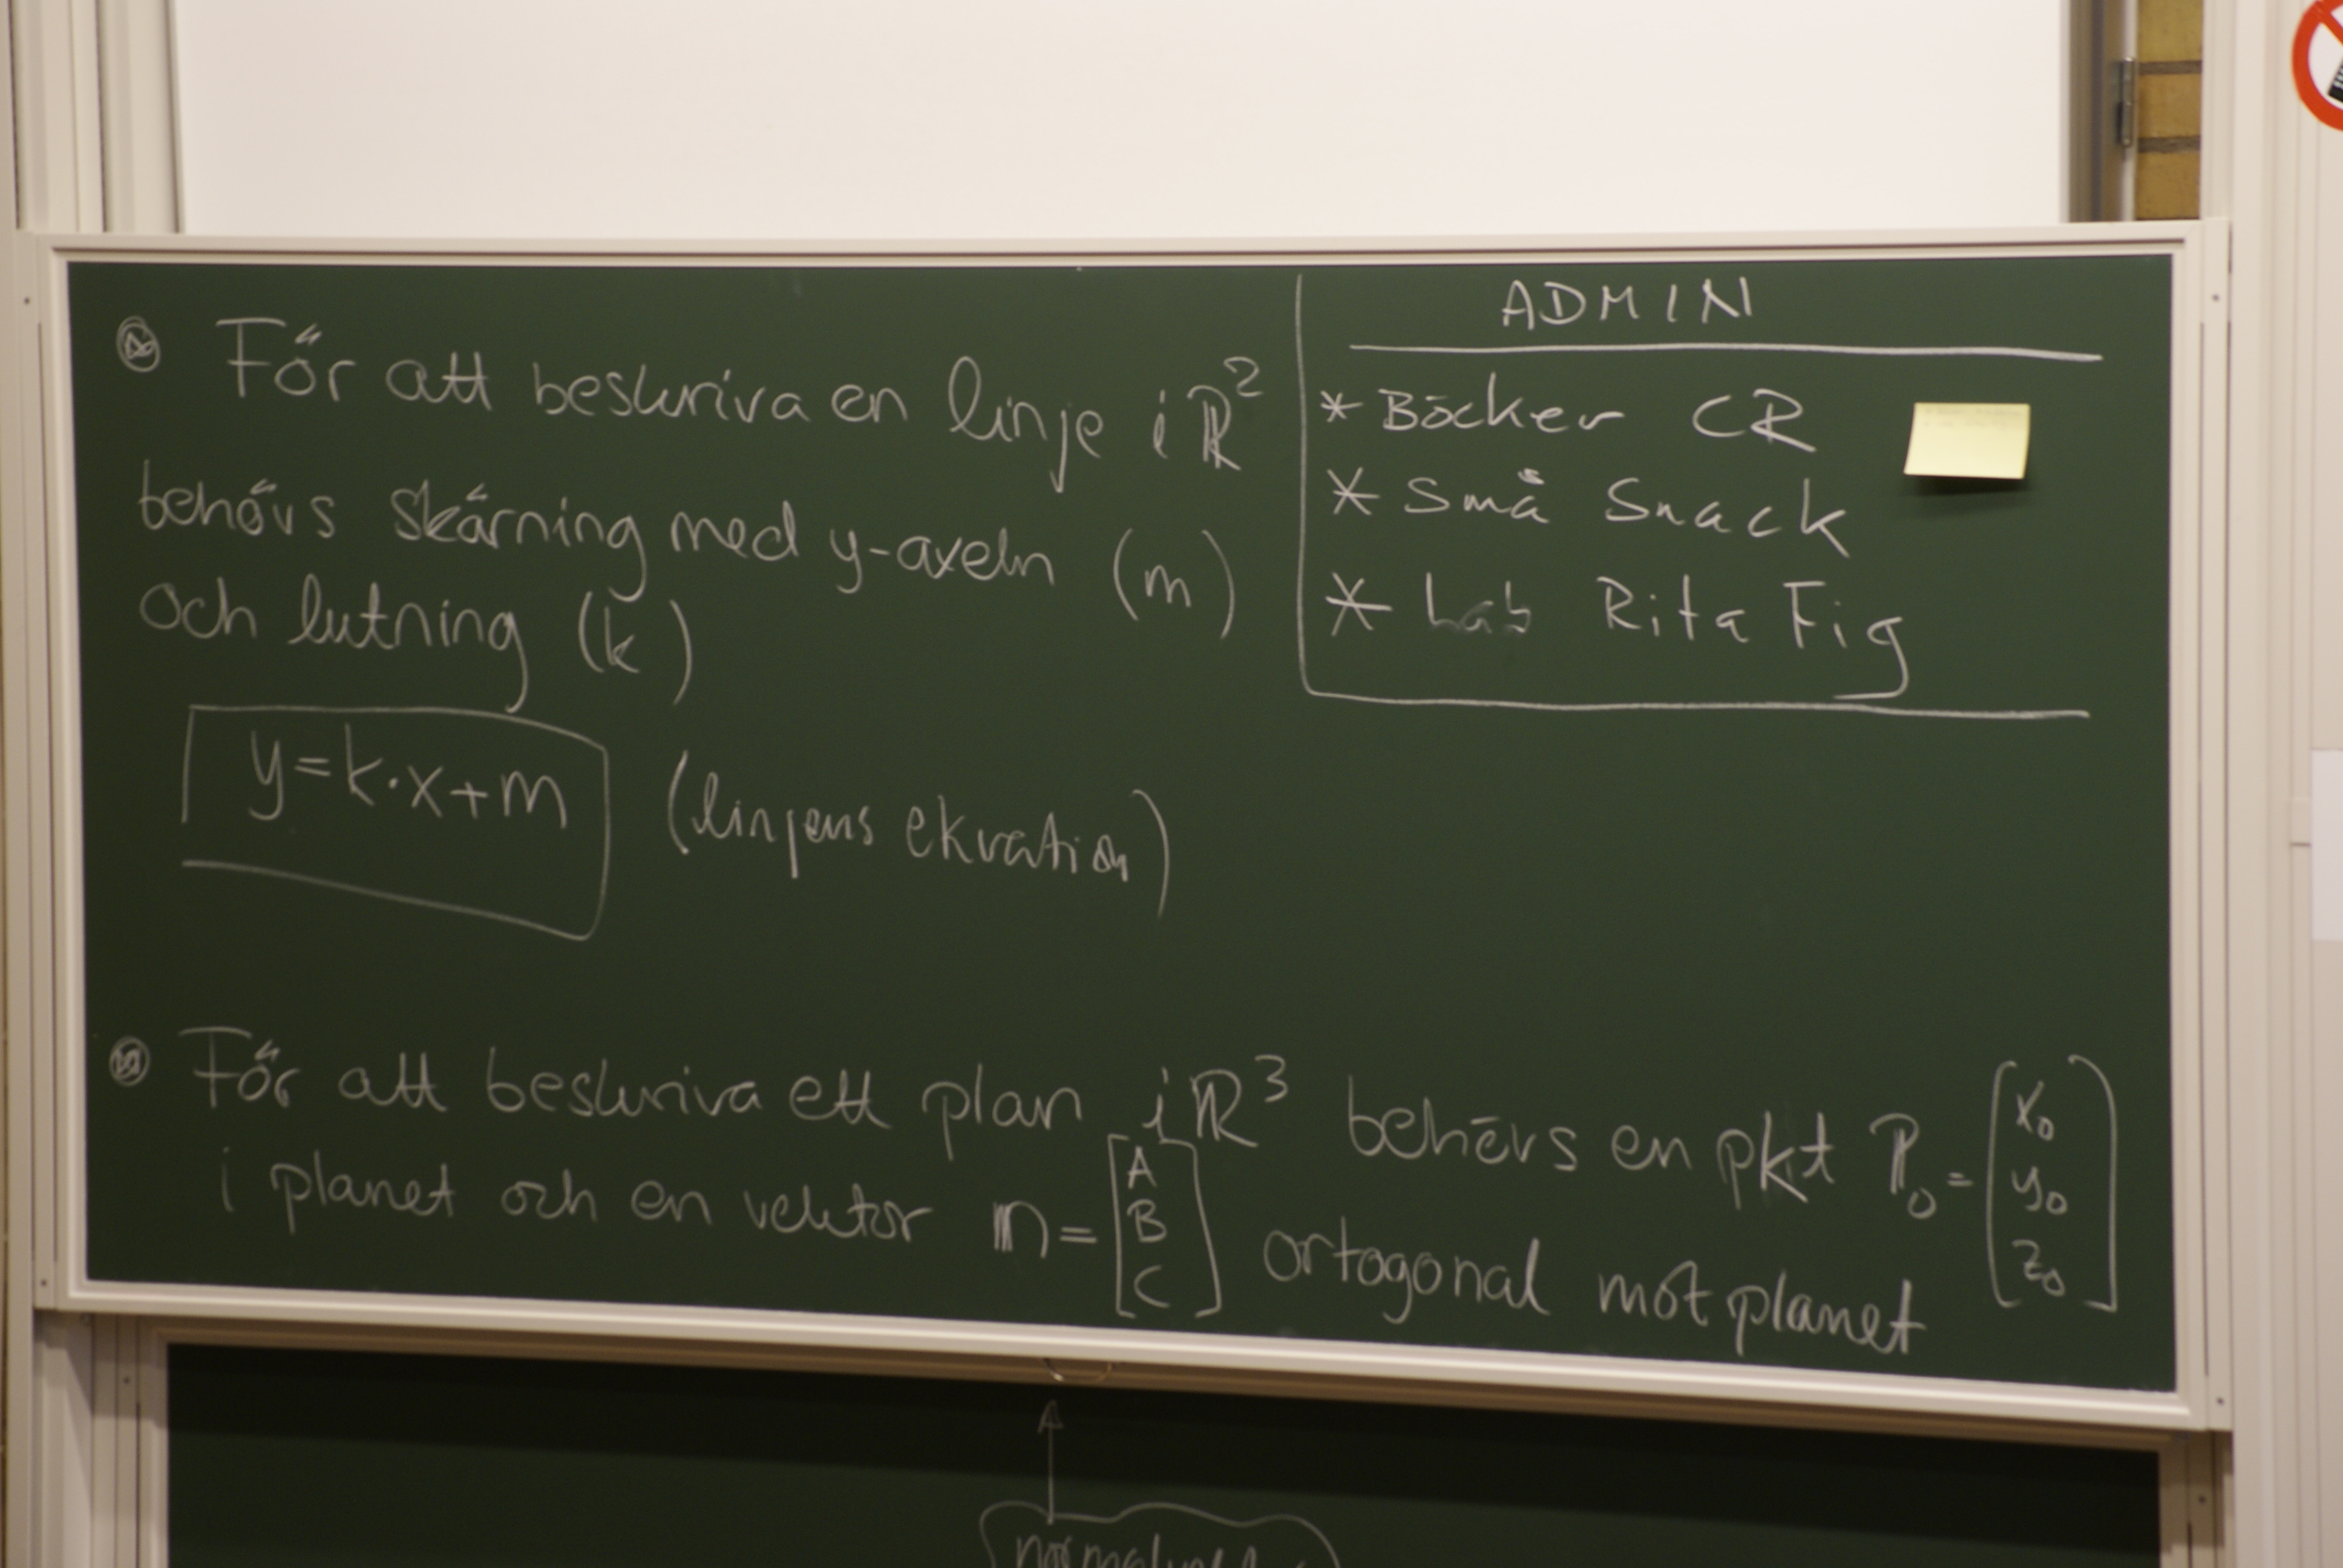 För att beskriva en linje i ℝ²
behövs skärning med y-axeln (m)
och lutning (k)
y=k·x+m (linjens ekvation)
ADMIN
* Böcker CR
* Små Snack
* Lab Rita Fig
För att beskriva ett plan i ℝ³ behövs en pkt P₀ = [x₀ y₀ z₀]
i planet och en vektor n = [A B C] ortogonal mot planet